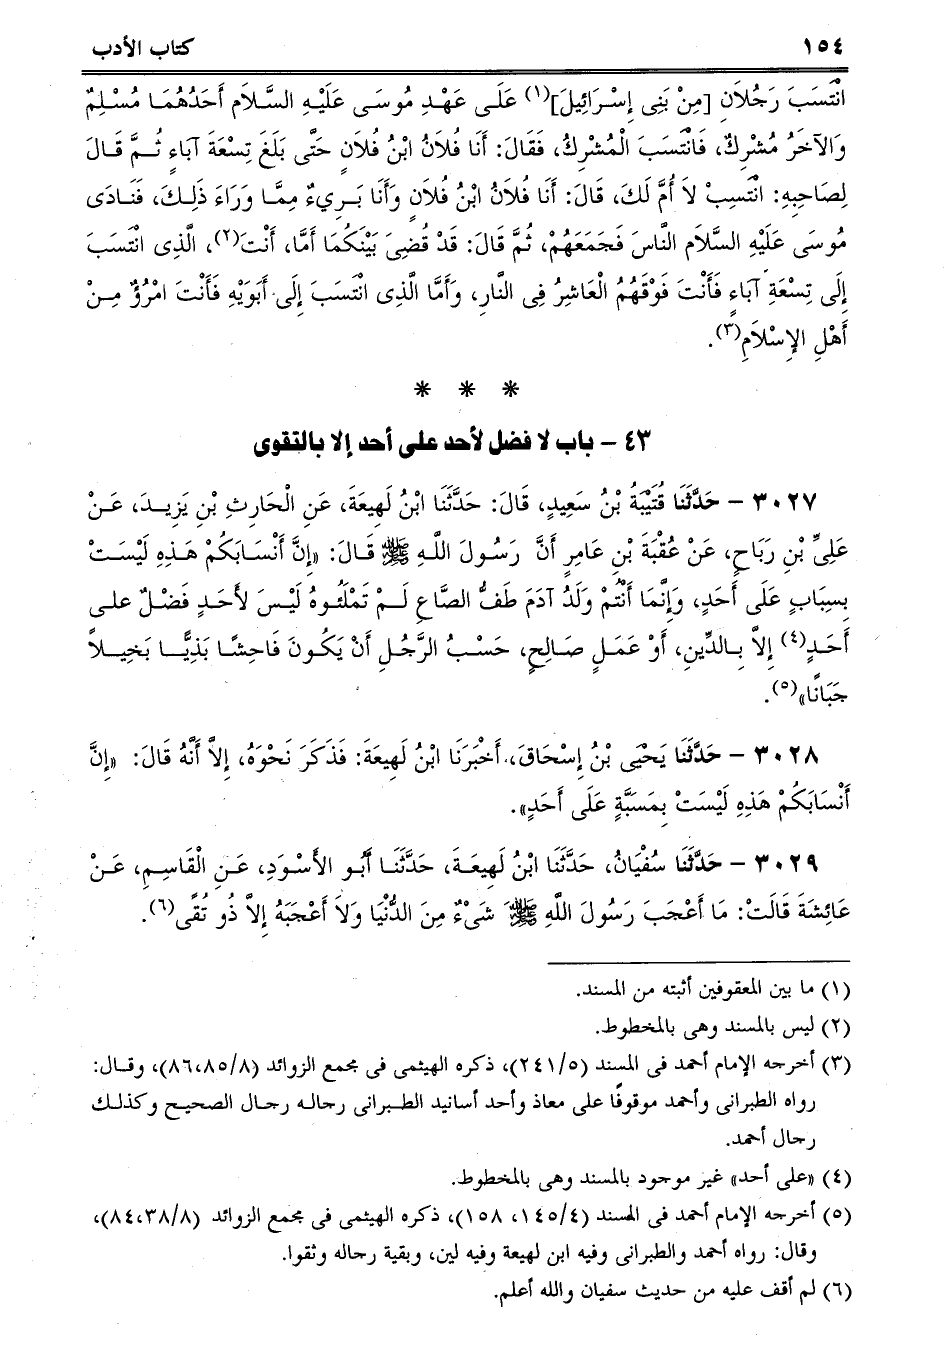 ١٥٤ كتاب الأدب
انْتَسَبَ رَجُلاَنِ [مِنْ بَنِى إِسْرَائِيلَ](١) عَلَى عَهْدِ مُوسَى عَلَيْهِ السَّلاَم أَحَدُهُمَا مُسْلِمٌ
وَالآخَرُ مُشْرِكٌ، فَانْتَسَبَ الْمُشْرِكُ، فَقَالَ: أَنَا فُلاَنُ ابْنُ فُلاَنِ حَتَّى بَلَغَ تِسْعَةَ آبَاءٍ ثُمَّ قَالَ
لِصَاحِبِهِ: انْتَسِبْ لاَ أُمَّ لَكَ، قَالَ: أَنَا فُلاَنُ ابْنُ فُلاَنٍ وَأَنَا بَرِيءٌ مِمَّا وَرَاءَ ذَلِكَ، فَنَادَى
مُوسَى عَلَيْهِ السَّلاَم النَّاسَ فَجَمَعَهُمْ، ثُمَّ قَالَ: قَدْ قُضِىَ بَيْنَكُمَا أَمَّا، أَنْتَ(٢)، الَّذِى انْتَسَبَ
إِلَى تِسْعَةِ آبَاءٍ فَأَنْتَ فَوْقَهُمُ الْعَاشِرُ فِى النَّارِ، وَأَمَّا الَّذِى انْتَسَبَ إِلَى أَبَوَيْهِ فَأَنْتَ امْرُؤٌ مِنْ
أَهْلِ الإِسْلاَمِ(٣).
* * *
٤٣ – باب لا فضل لأحد على أحد إلا بالتقوى
٣٠٢٧ – حَدَّثَنَا قُتَيْبَةُ بْنُ سَعِيدٍ، قَالَ: حَدَّثَنَا ابْنُ لَهِيعَةَ، عَنِ الْحَارِثِ بْنِ يَزِيدَ، عَنْ
عَلِىِّ بْنِ رَبَاحٍ، عَنْ عُقْبَةَ بْنِ عَامِرٍ أَنَّ رَسُولَ اللَّهِ ﷺ قَالَ: «إِنَّ أَنْسَابَكُمْ هَذِهِ لَيْسَتْ
بِسِبَابٍ عَلَى أَحَدٍ، وَإِنَّمَا أَنْتُمْ وَلَدُ آدَمَ طَفُّ الصَّاعِ لَمْ تَمْلَئُوهُ لَيْسَ لأَحَدٍ فَضْلٌ على
أَحَدٍ(٤) إِلاَّ بِالدِّينِ، أَوْ عَمَلٍ صَالِحٍ، حَسْبُ الرَّجُلِ أَنْ يَكُونَ فَاحِشًا بَذِيًّا بَخِيلاً
جَبَانًا»(٥).
٣٠٢٨ – حَدَّثَنَا يَحْيَى بْنُ إِسْحَاقَ، أَخْبَرَنَا ابْنُ لَهِيعَةَ: فَذَكَرَ نَحْوَهُ، إِلاَّ أَنَّهُ قَالَ: «إِنَّ
أَنْسَابَكُمْ هَذِهِ لَيْسَتْ بِمَسَبَّةٍ عَلَى أَحَدٍ».
٣٠٢٩ – حَدَّثَنَا سُفْيَانُ، حَدَّثَنَا ابْنُ لَهِيعَةَ، حَدَّثَنَا أَبُو الأَسْوَدِ، عَنِ الْقَاسِمِ، عَنْ
عَائِشَةَ قَالَتْ: مَا أَعْجَبَ رَسُولَ اللَّهِ ﷺ شَىْءٌ مِنَ الدُّنْيَا وَلاَ أَعْجَبَهُ إِلاَّ ذُو تُقًى(٦).
(١) ما بين المعقوفين أثبته من المسند.
(٢) ليس بالمسند وهى بالمخطوط.
(٣) أخرجه الإمام أحمد فى المسند (٢٤١/٥)، ذكره الهيثمى فى مجمع الزوائد (٨٦،٨٥/٨)، وقال:
رواه الطبرانى وأحمد موقوفًا على معاذ وأحد أسانيد الطبرانى رجاله رجال الصحيح وكذلك
رجال أحمد.
(٤) «على أحد» غير موجود بالمسند وهى بالمخطوط.
(٥) أخرجه الإمام أحمد فى المسند (١٤٥/٤، ١٥٨)، ذكره الهيثمى فى مجمع الزوائد (٨٤،٣٨/٨)،
وقال: رواه أحمد والطبرانى وفيه ابن لهيعة وفيه لين، وبقية رجاله وثقوا.
(٦) لم أقف عليه من حديث سفيان والله أعلم.